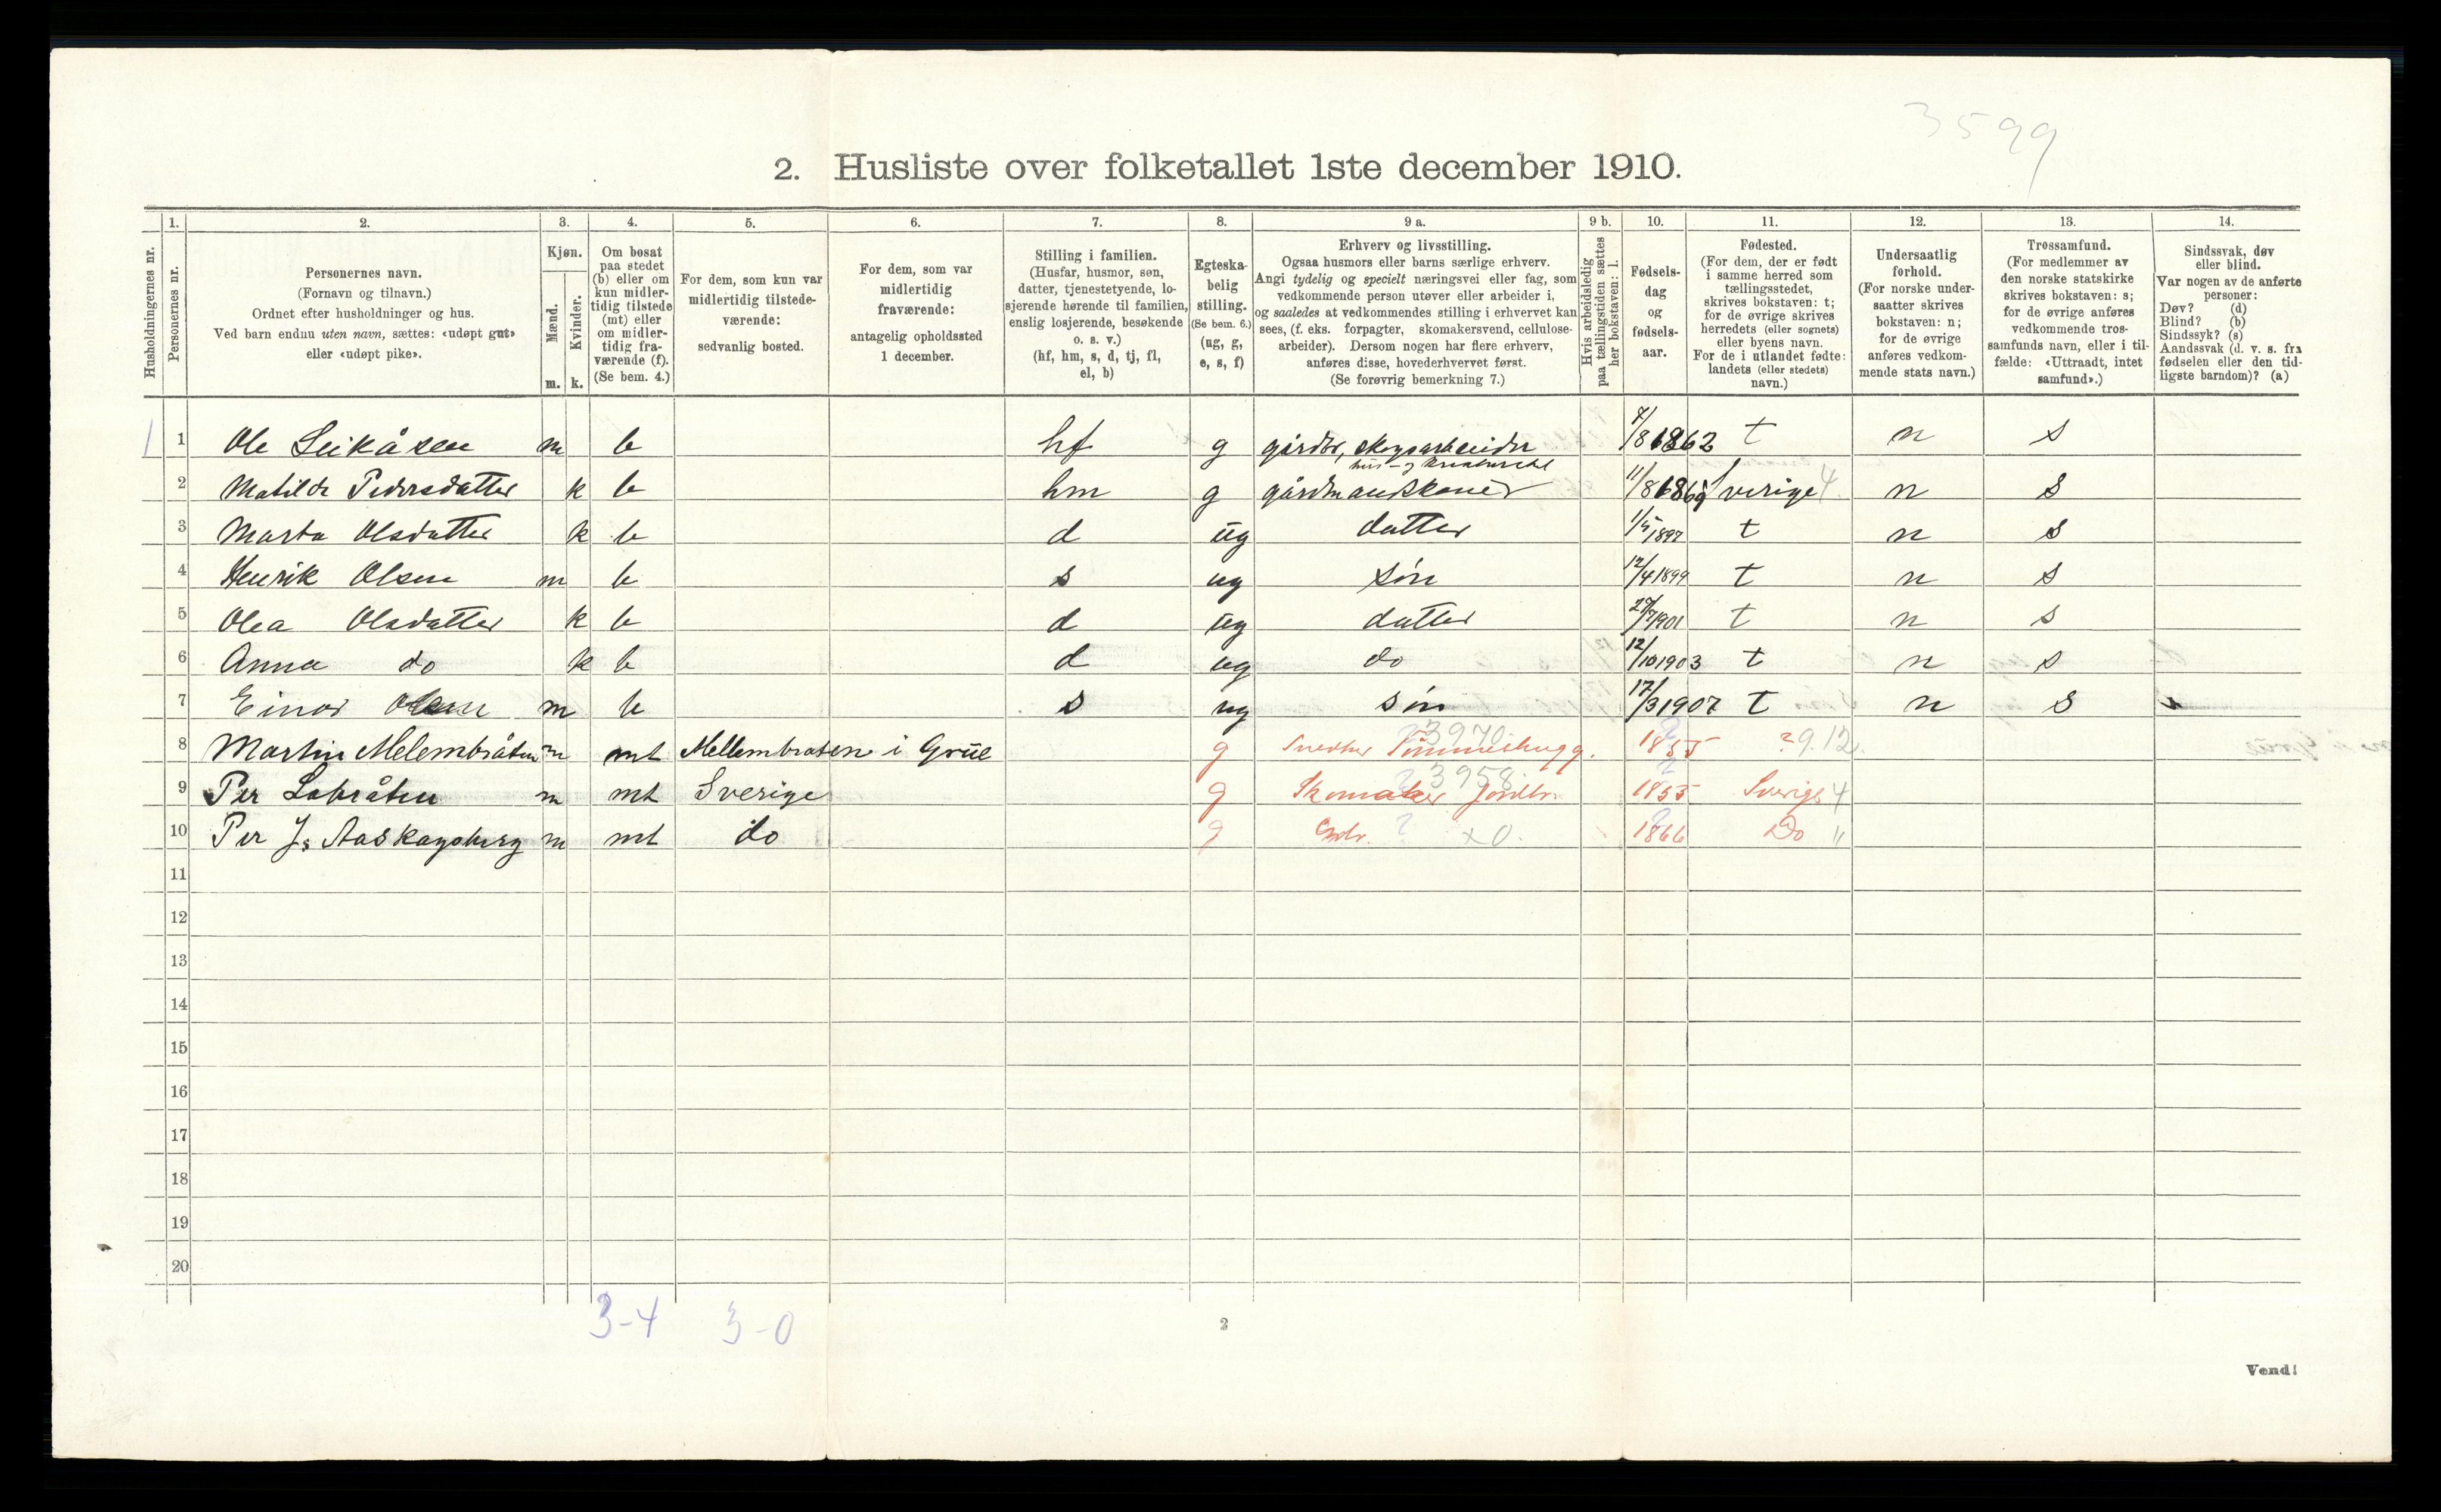 3599
2. Husliste over folketallet 1ste december 1910.
Husholdningernes nr.
1. Personernes nr.
2. Personernes navn.
(Fornavn og tilnavn.)
Ordnet efter husholdninger og hus.
Ved barn endnu uten navn, sættes: «udøpt gut»
eller «udøpt pike».
3. Kjøn.
Mænd. m.
Kvinder. k.
4. Om bosat
paa stedet
(b) eller om
kun midler-
tidig tilstede
(mt) eller
om midler-
tidig fra-
værende (f).
(Se bem. 4.)
5. For dem, som kun var
midlertidig tilstede-
værende:
sedvanlig bosted.
6. For dem, som var
midlertidig
fraværende:
antagelig opholdssted
1 december.
7. Stilling i familien.
(Husfar, husmor, søn,
datter, tjenestetyende, lo-
sjerende hørende til familien,
enslig losjerende, besøkende
o. s. v.)
(hf, hm, s, d, tj, fl,
el, b)
8. Egteska-
belig
stilling.
(Se bem. 6.)
(ug, g,
e, s, f)
9 a. Erhverv og livsstilling.
Ogsaa husmors eller barns særlige erhverv.
Angi tydelig og specielt næringsvei eller fag, som
vedkommende person utøver eller arbeider i,
og saaledes at vedkommendes stilling i erhvervet kan
sees, (f. eks. forpagter, skomakersvend, cellulose-
arbeider). Dersom nogen har flere erhverv,
anføres disse, hovederhvervet først.
(Se forøvrig bemerkning 7.)
9 b. Hvis arbeidsledig
paa tællingstiden sættes
her bokstaven: l.
10. Fødsels-
dag
og
fødsels-
aar.
11. Fødested.
(For dem, der er født
i samme herred som
tællingsstedet,
skrives bokstaven: t;
for de øvrige skrives
herredets (eller sognets)
eller byens navn.
For de i utlandet fødte:
landets (eller stedets)
navn.)
12. Undersaatlig
forhold.
(For norske under-
saatter skrives
bokstaven: n;
for de øvrige
anføres vedkom-
mende stats navn.)
13. Trossamfund.
(For medlemmer av
den norske statskirke
skrives bokstaven: s;
for de øvrige anføres
vedkommende tros-
samfunds navn, eller i til-
fælde: «Uttraadt, intet
samfund».)
14. Sindssvak, døv
eller blind.
Var nogen av de anførte
personer:
Døv? (d)
Blind? (b)
Sindssyk? (s)
Aandssvak (d. v. s. fra
fødselen eller den tid-
ligste barndom)? (a)
1 1 Ole Leikåsen m b hf g gårdbr, skogsarbeider 7/8 1862 t n s
hus- og kreaturstel
2 Matilde Pedersdatter k b hm g gårdmandskone 11/8 1869 Sverige 4 n s
3 Marta Olsdatter k b d ug datter 1/5 1897 t n s
4 Henrik Olsen m b s ug søn 12/4 1899 t n s
5 Olea Olsdatter k b d ug datter 27/7 1901 t n s
6 Anna do k b d ug do 12/10 1903 t n s
7 Einar Olsen m b s ug søn 17/3 1907 t n s
8 Martin Melembråten m mt Mellembraten i Grue g Snedker Tømmerhugg. 3970 1855 ? 9.12.
9 Per Labråten m mt Sverige g Skomaker Jordbr. 3958 1855 Sverige 4
10 Per J. Aaskagsberg m mt do g Gdbr. ? x0. 1866 Do "
11
12
13
14
15
16
17
18
19
20
3-4 3-0
2
Vend!